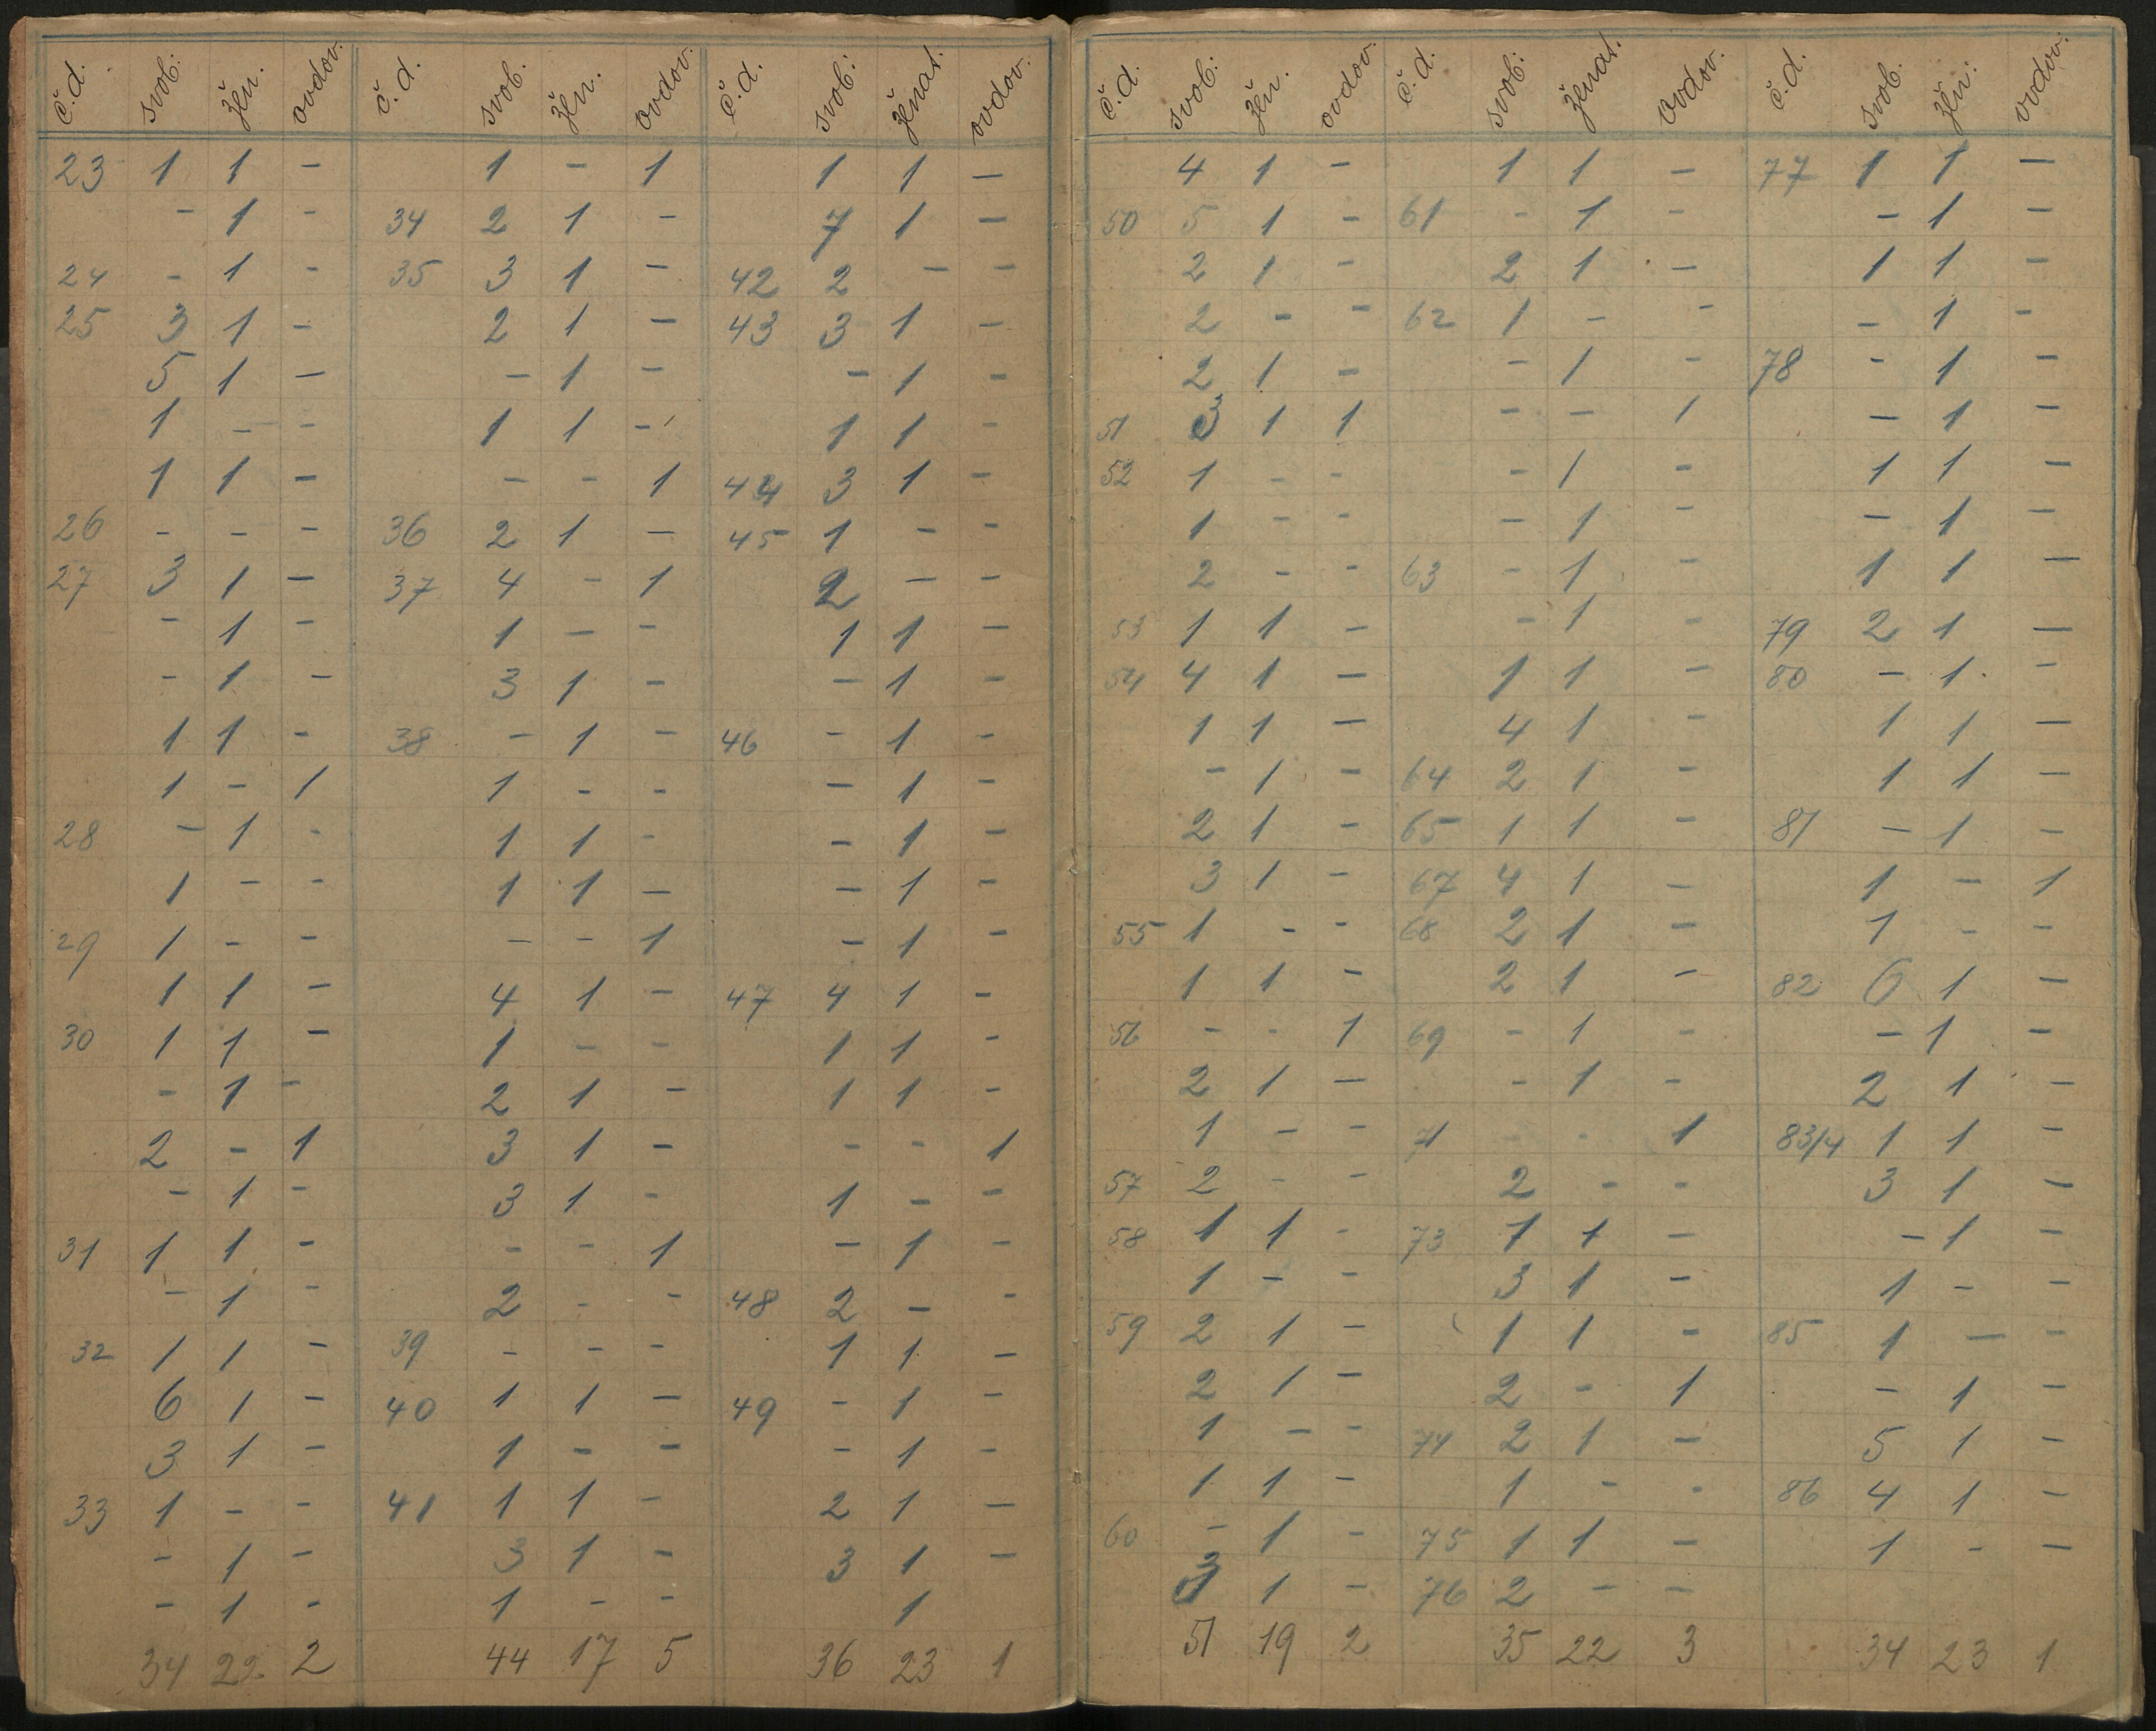 č.d. svob. žen. ovdov. č.d. svob. žen. ovdov. č.d. svob. ženat. ovdov.
23 1 1 - 1 - 1 1 1 -
- 1 - 34 2 1 - 7 1 -
24 - 1 - 35 3 1 - 42 2 - -
25 3 1 - 2 1 - 43 3 1 -
5 1 - - 1 - - 1 -
1 - - 1 1 - 1 1 -
1 1 - - - 1 44 3 1 -
26 - - - 36 2 1 - 45 1 - -
27 3 1 - 37 4 - 1 2 - -
- 1 - 1 - - 1 1 -
- 1 - 3 1 - - 1 -
1 1 - 38 - 1 - 46 - 1 -
1 - 1 1 - - - 1 -
28 - 1 - 1 1 - - 1 -
1 - - 1 1 - - 1 -
29 1 - - - - 1 - 1 -
1 1 - 4 1 - 47 4 1 -
30 1 1 - 1 - - 1 1 -
- 1 - 2 1 - 1 1 -
2 - 1 3 1 - - - 1
- 1 - 3 1 - 1 - -
31 1 1 - - - 1 - 1 -
- 1 - 2 - - 48 2 - -
32 1 1 - 39 - - - 1 1 -
6 1 - 40 1 1 - 49 - 1 -
3 1 - 1 - - - 1 -
33 1 - - 41 1 1 - 2 1 -
- 1 - 3 1 - 3 1 -
- 1 - 1 - - 1
34 22 2 44 17 5 36 23 1
č.d. svob. žen. ovdov. č.d. svob. ženat. ovdov. č.d. svob. žen. ovdov.
4 1 - 1 1 - 77 1 1 -
50 5 1 - 61 - 1 - - 1 -
2 1 - 2 1 - 1 1 -
2 - - 62 1 - - - 1 -
2 1 - - 1 - 78 - 1 -
51 3 1 1 - - 1 - 1 -
52 1 - - - 1 - 1 1 -
1 - - - 1 - - 1 -
2 - - 63 - 1 - 1 1 -
53 1 1 - - 1 - 79 2 1 -
54 4 1 - 1 1 - 80 - 1 -
1 1 - 4 1 - 1 1 -
- 1 - 64 2 1 - 1 1 -
2 1 - 65 1 1 - 81 - 1 -
3 1 - 67 4 1 - 1 - 1
55 1 - - 68 2 1 - 1 - -
1 1 - 2 1 - 82 6 1 -
56 - - 1 69 - 1 - - 1 -
2 1 - - 1 - 2 1 -
1 - - 71 - - 1 83/4 1 1 -
57 2 - - 2 - - 3 1 -
58 1 1 - 73 1 1 - - 1 -
1 - - 3 1 - 1 - -
59 2 1 - 1 1 - 85 1 - -
2 1 - 2 - 1 - 1 -
1 - - 74 2 1 - 5 1 -
1 1 - 1 - - 86 4 1 -
60 - 1 - 75 1 1 - 1 - -
3 1 - 76 2 - -
51 19 2 35 22 3 34 23 1